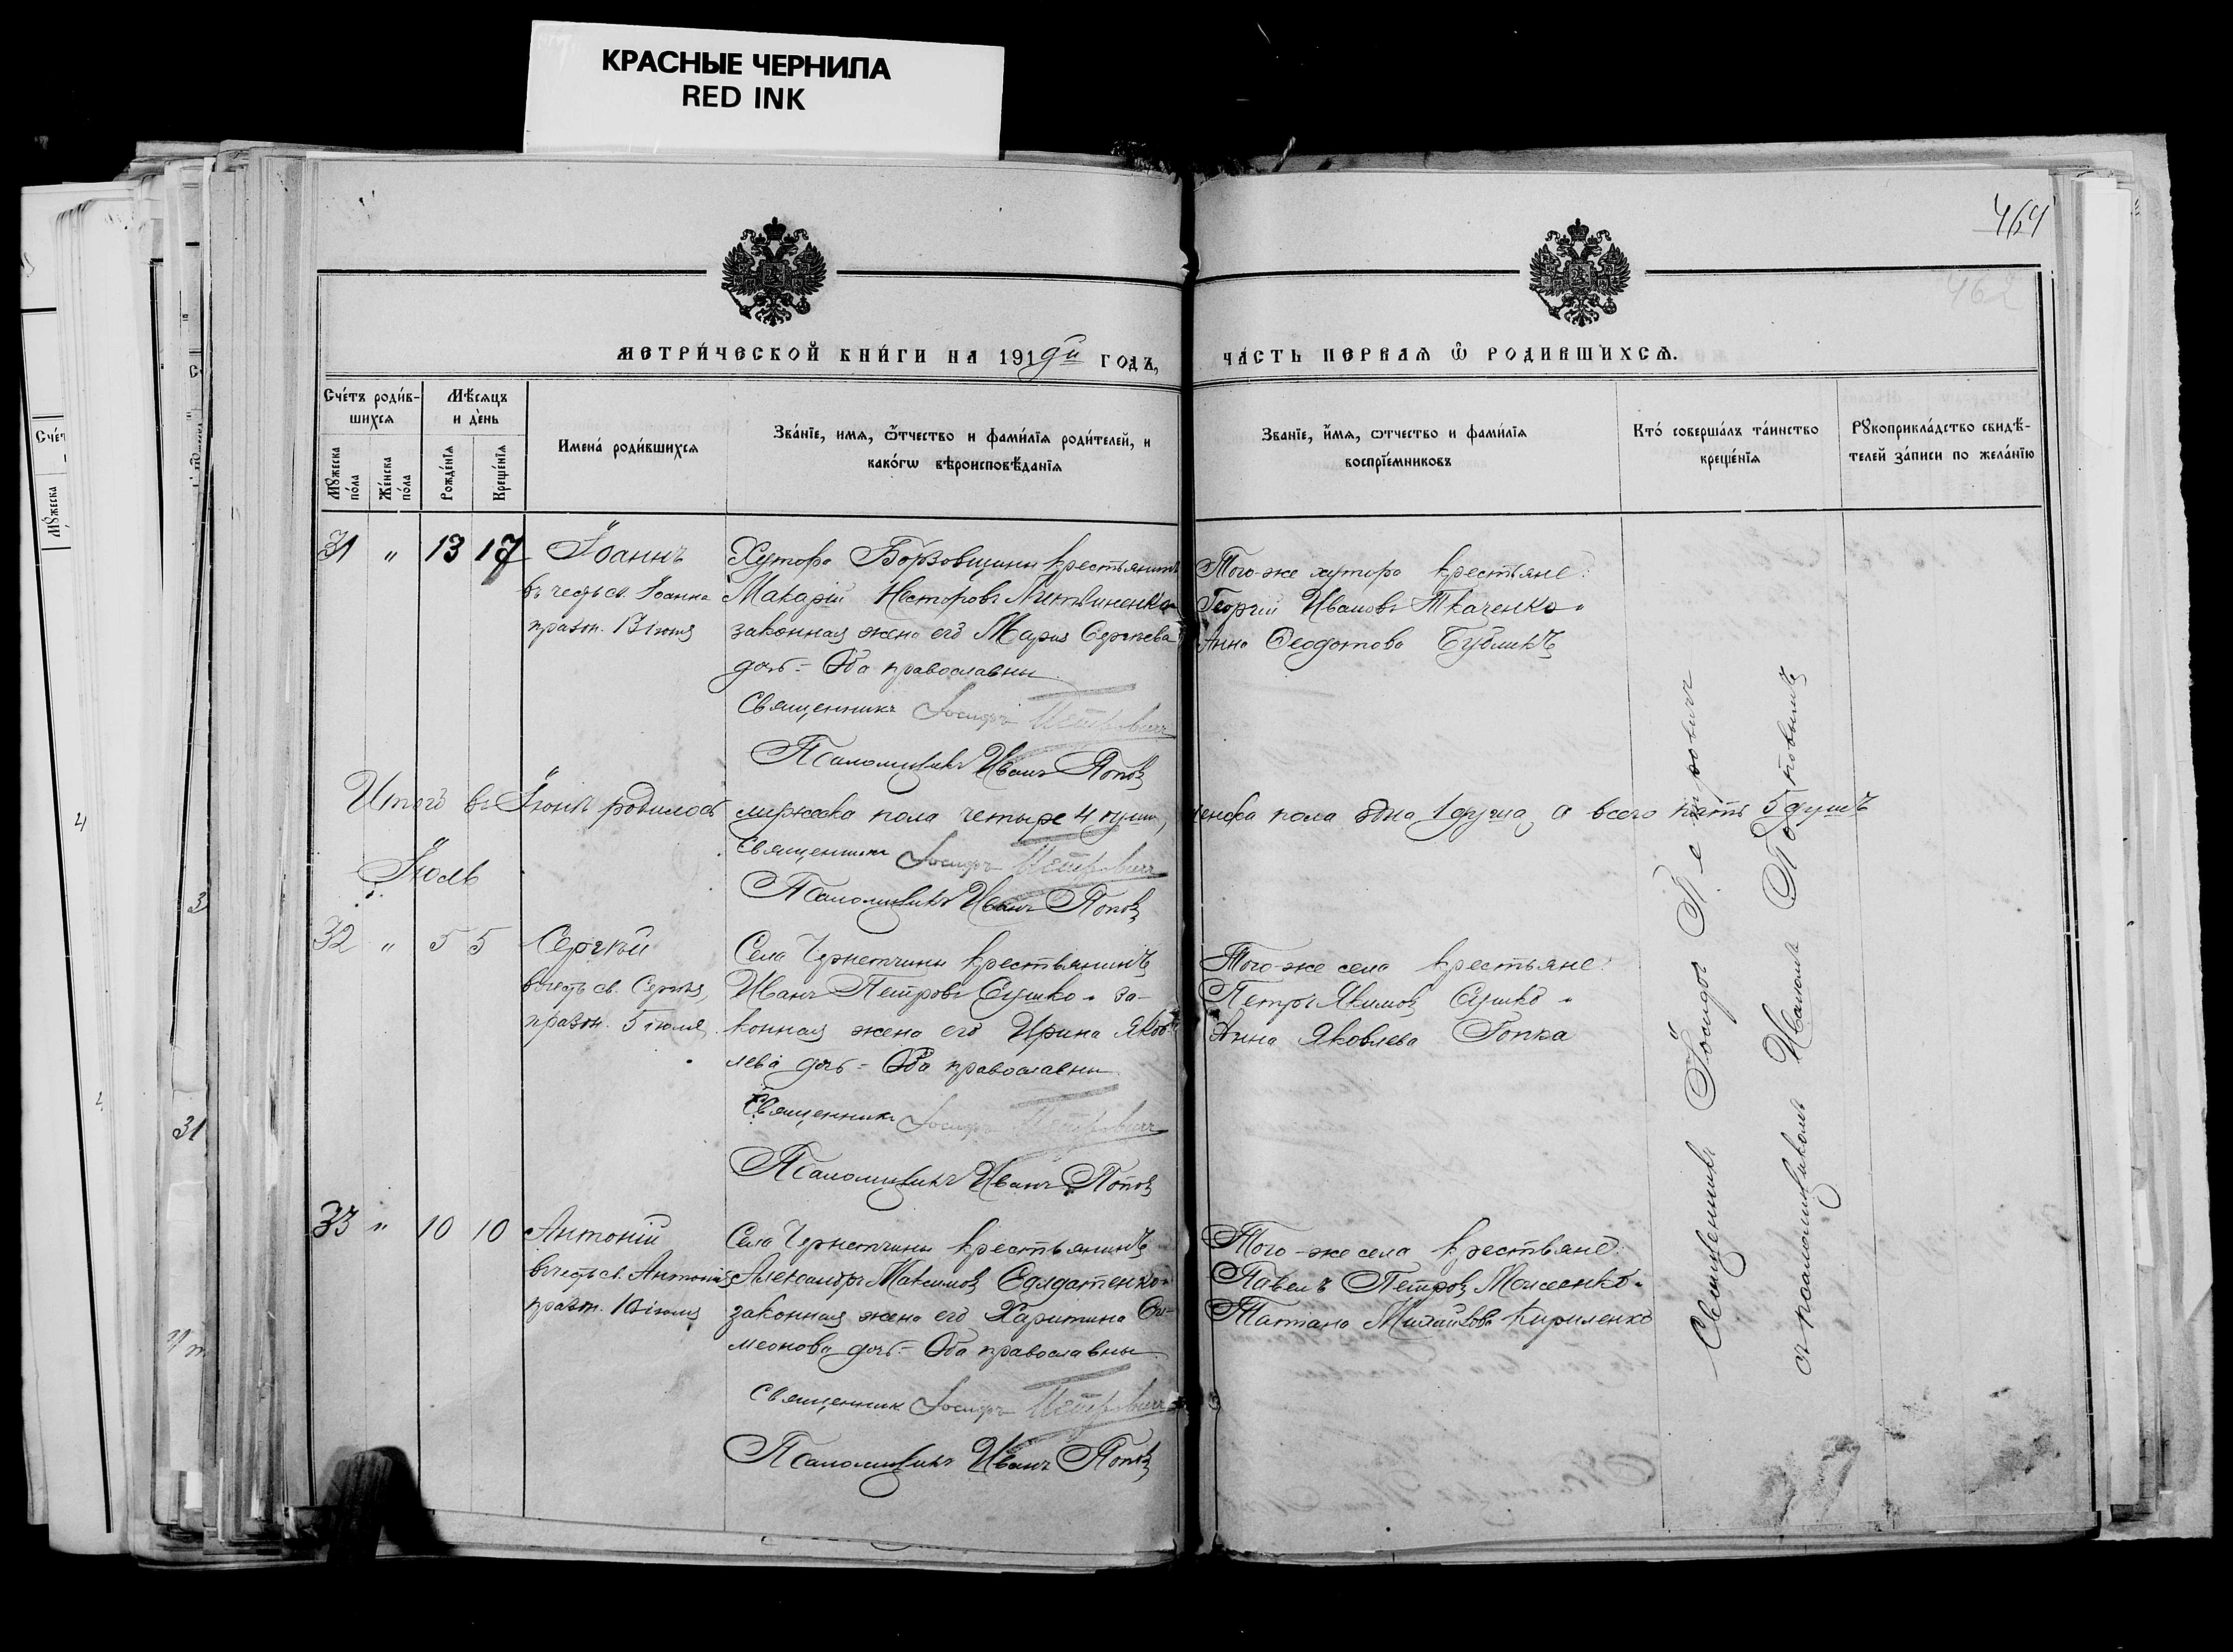 КРАСНЫЕ ЧЕРНИЛА
RED INK
464
462
МЕТРИ́ЧЕСКОЙ КНИ́ГИ НА 1919й ГОДЪ,
ЧА́СТЬ ПЕРВАЯ Ѿ РОДИВШИХСЯ.
Сче́тъ роди́в-
шихся
Мѣ́сяцъ
и де́нь
Мꙋ́жеска
по́ла
Же́нска
по́ла
Рожде́нїя
Креще́нїя
Имена́ роди́вшихся
Зва́нїе, имя, ѻ҆́тчество и фами́лїя роди́телей, и
како́гѡ вѣроисповѣ́данїя
Зва́нїе, и́мя, ѻтчество и фами́лїя
воспрїе́мниковъ
Кто́ соверша́лъ та́инство
креще́нїя
Рꙋкоприкла́дство свидѣ́-
телей за́писи по жела́нїю
31 " 13 17 Іоаннъ
въ честь св. Іоанна
празн. 13 іюня
Хутора Борзовщины крестьянинъ
Макарій Несторовъ Литвиненко
законная жена его Марія Сергѣева
дочь - Оба православны
Священникъ Іосифъ Петровичъ
Псаломщикъ Иванъ Поповъ
Того-же хутора крестьяне:
Георгій Ивановъ Ткаченко
Анна Феодотова Бубликъ
Итого въ Іюнѣ родилось мужеска пола четыре 4 души, женска пола одна 1 душа, а всего пять 5 душъ
Священникъ Іосифъ Петровичъ
Псаломщикъ Иванъ Поповъ
Іюль
32 " 5 5 Сергѣй
въ честь св. Сергѣя,
празн. 5 іюля.
Села Чернетчины крестьянинъ
Иванъ Петровъ Сушко за-
конная жена его Ирина Яков-
лева дочь - Оба православны
Священникъ Іосифъ Петровичъ
Псаломщикъ Иванъ Поповъ
Того-же села крестьяне:
Петръ Якимовъ Сушко
Анна Яковлева Гопка
33 " 10 10 Антоній
въ честь св. Антонія
празн. 10 іюля
Села Чернетчины крестьянинъ
Александръ Максимовъ Солдатенко
законная жена его Харитина Си-
меонова дочь - Оба православны
Священникъ Іосифъ Петровичъ
Псаломщикъ Иванъ Поповъ
Того-же села крестьяне:
Павелъ Петровъ Моисеенко
Татіана Михайлова Кириленко
Священникъ Іосифъ Петровичъ
съ псаломщикомъ Иваномъ Поповымъ